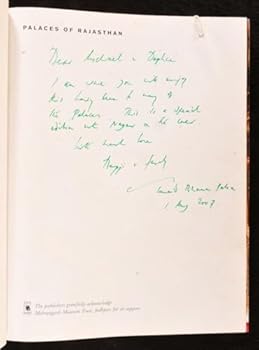 PALACES OF RAJASTHAN
Dear Michael &
I am sure you will enjoy
this being been to many of
the Palaces. This is a special
edition with Nagaur on the cover.
with much love
1 Aug 2007
The publishers gratefully acknowledge
Mehrangarh Museum Trust, Jodhpur for its support